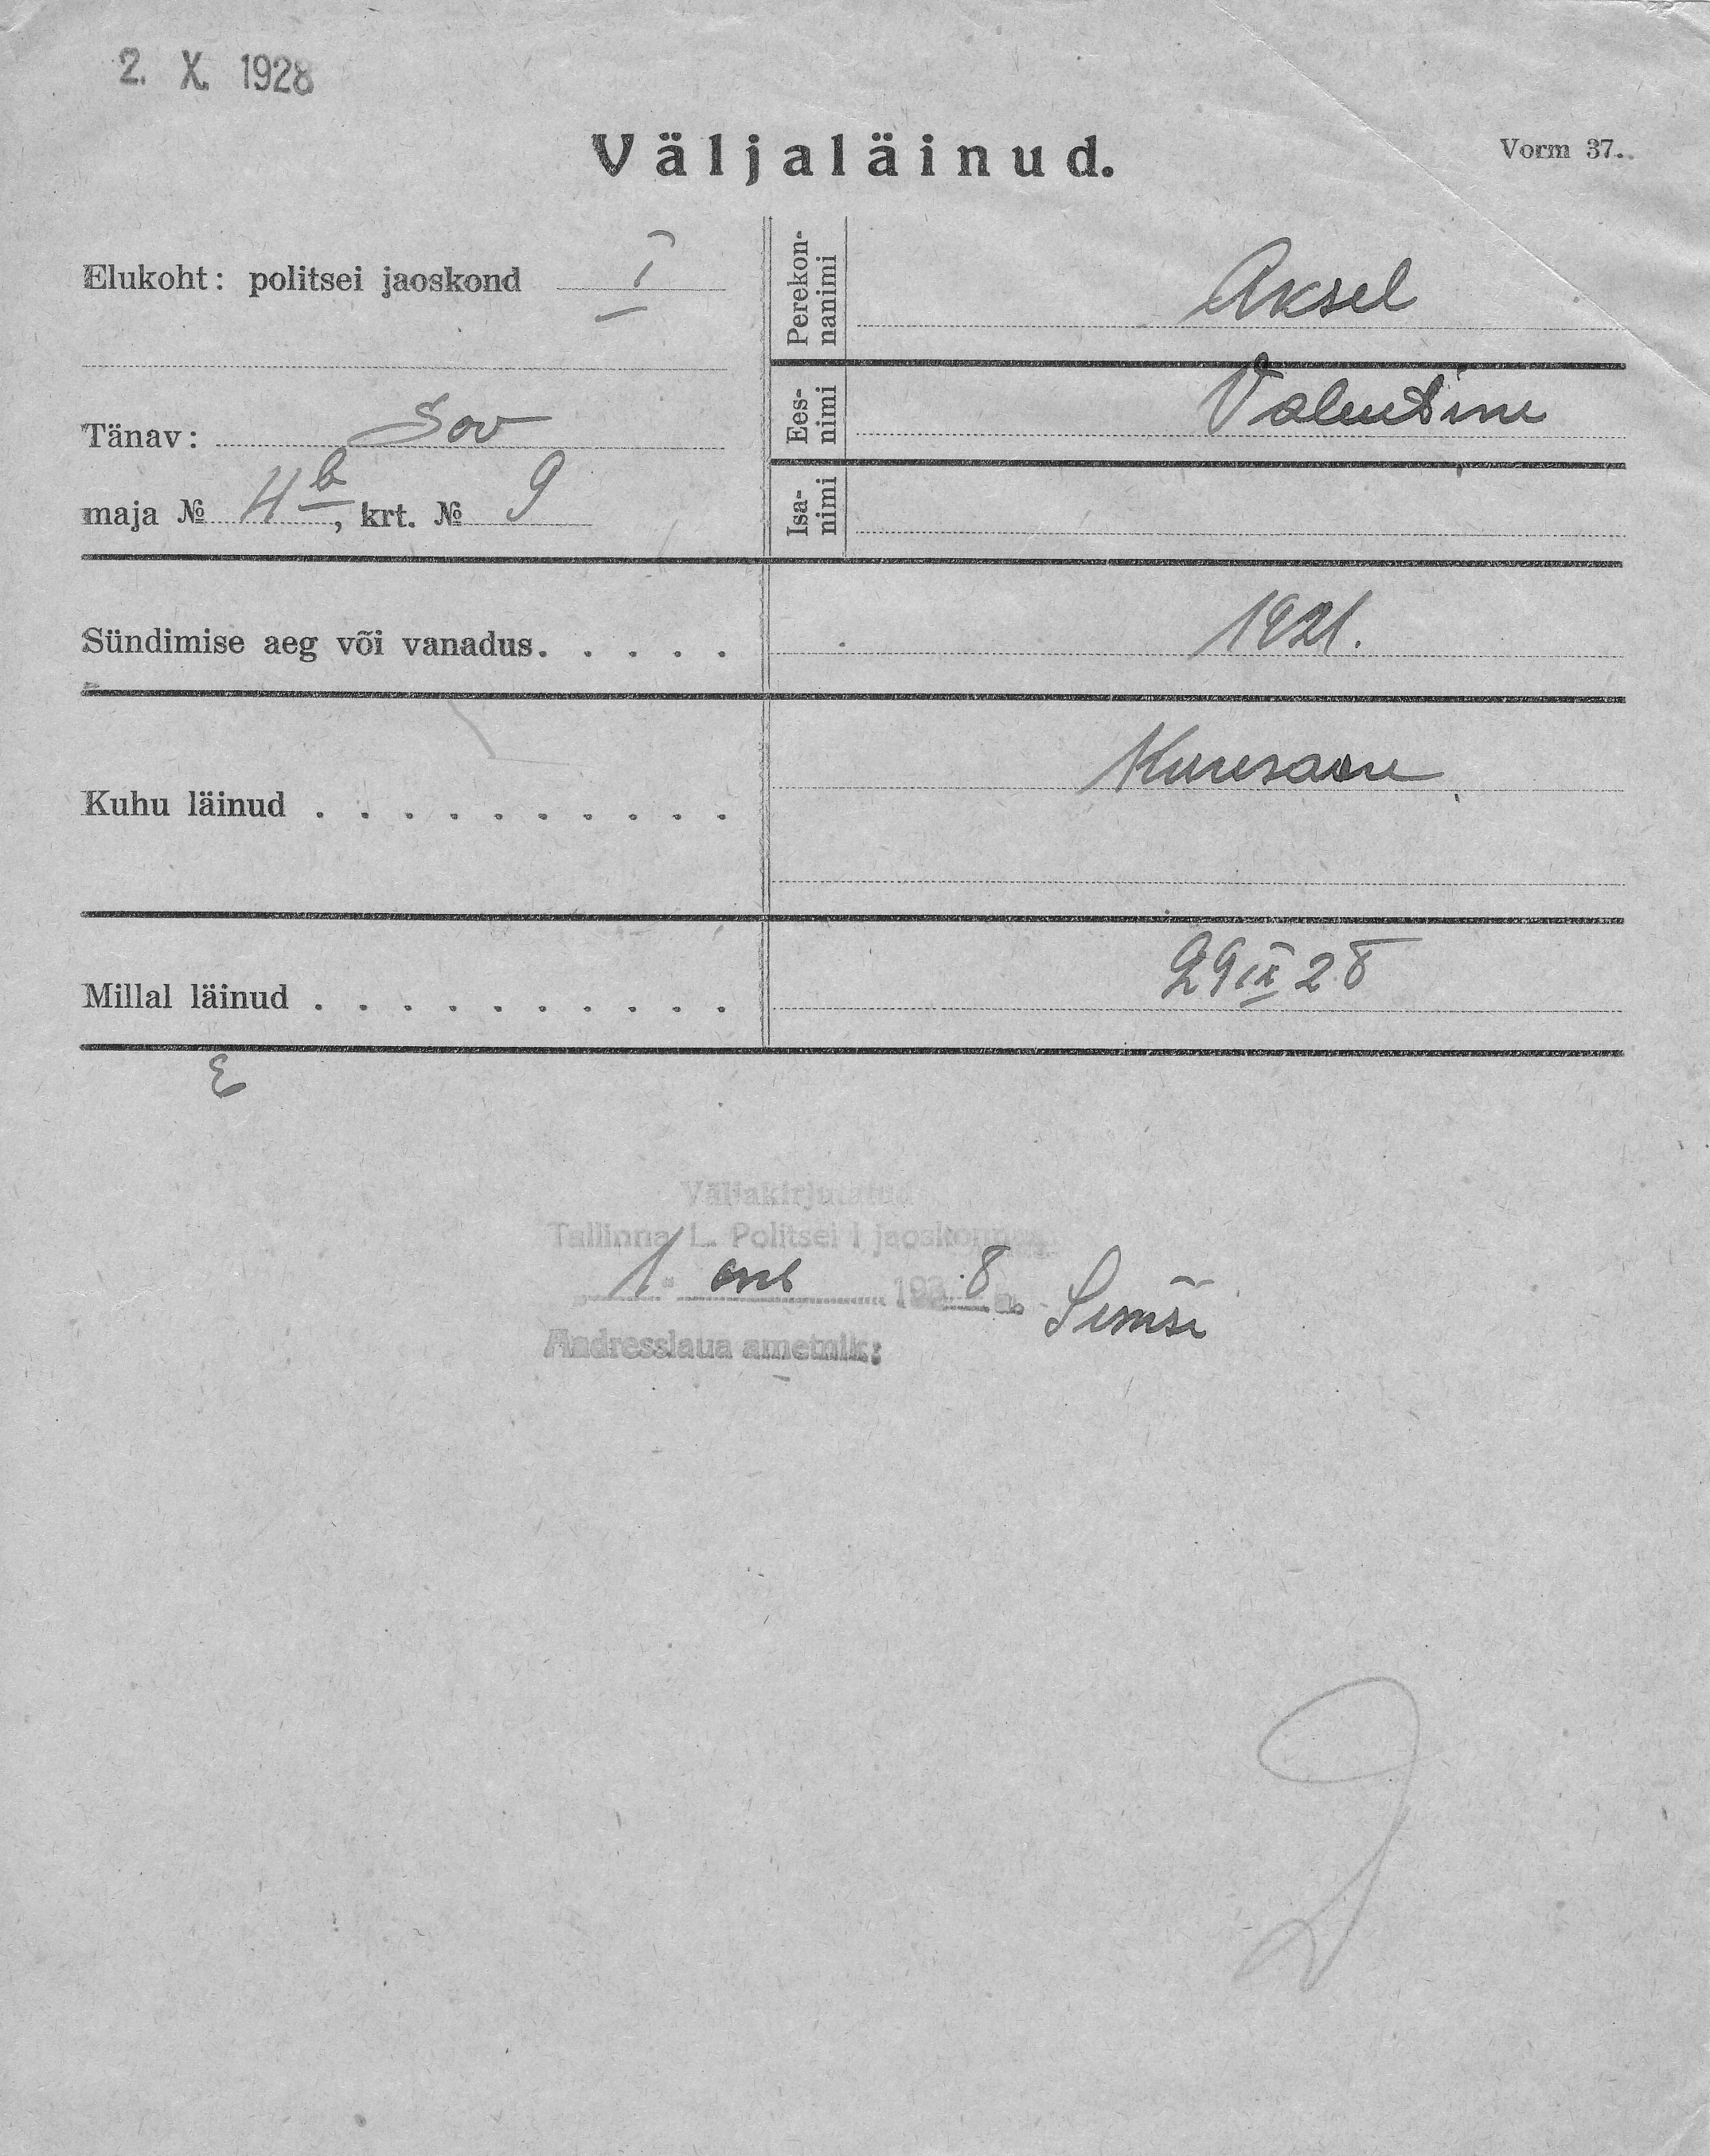 2. X. 1928
Väljaläinud.
Vorm 37.
Elukoht: politsei jaoskond I
Tänav: Soo
maja № 4b, krt. № 9
Perekon-
nanimi
Aksel
Ees-
nimi
Valentine
Isa-
nimi
Sündimise aeg või vanadus. . . . .
1921.
Kuhu läinud . . . . . . . . . .
Kuresaare
Millal läinud . . . . . . . . . .
29 IX 28
Väljakirjutatud
Tallinna L. Politsei I jaoskonnas
„ 1 " okt 1928 a.
Aadresslaua ametnik: